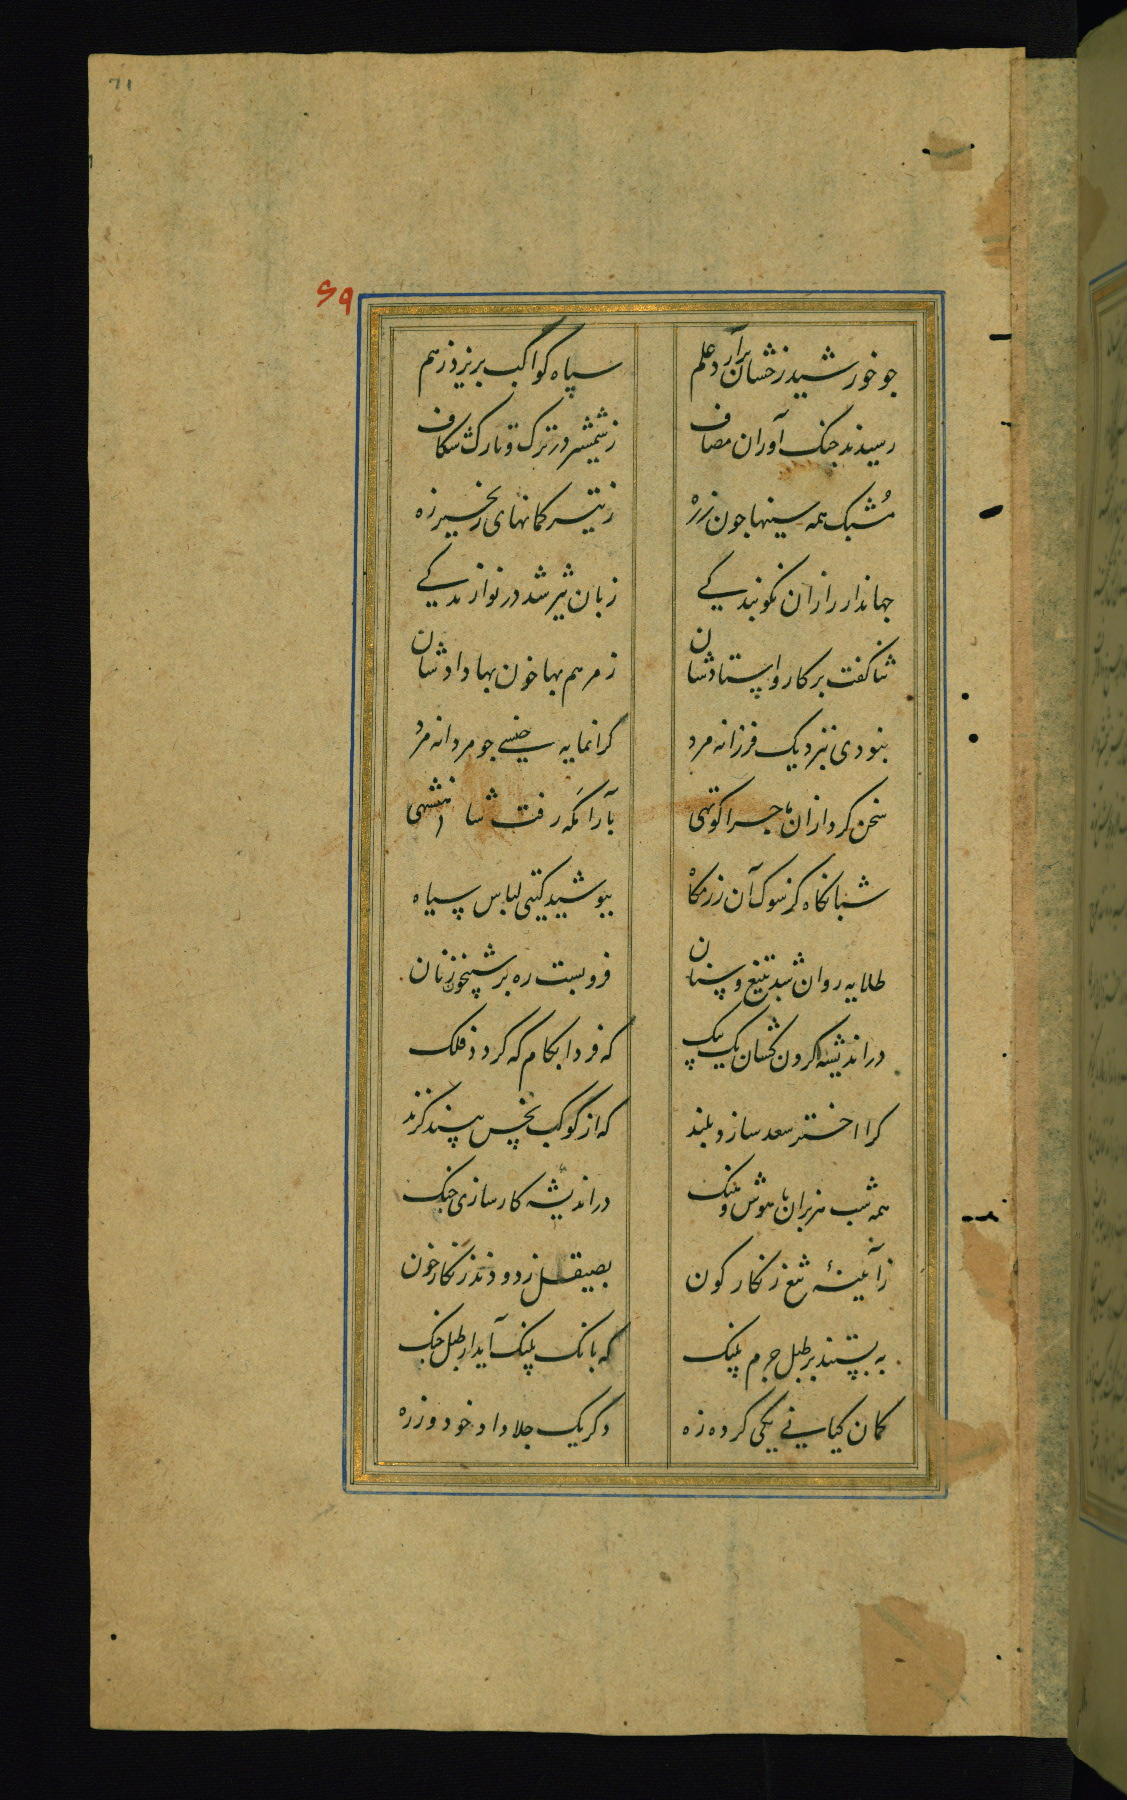 71
69
جو خورشید رخشان برآرد علم سپاه کواکب بریزد ز هم
رسیدند جنک آوران مصاف ز شمشیر در ترک و تارک شکاف
مُشبک همه سینها جون زره ز تیر کمانهای زه
جهاندار را زان نکو بندکی زبان تیز شد در نوازندکی
ثنا کفت بر کار و استادشان ز مرهم بها خون بها دادشان
بنودی بنزدیک فرزانه مرد کرانمایه جنسی جو مردانه مرد
سخن کرد ازان ماجرا کوتهی بآرامکه رفت شاهنشهی
شبانکاه کز سوک آن رزمکاه بپوشید کیتی لباس سیاه
طلایه روان شد بتیغ و سنان فروبست ره بر شبیخون زنان
در اندیشه کردن کشان یک بیک که فردا بکام که کردد فلک
کرا اختر سعد سازد بلند که از کوکب نحس بیند کزند
همه شب هزبران با هوش و هنک در اندیشه کارسازی جنک
ز آیینهٔ تیغ زنکار کون بصیقل زدودند زنکار خون
به بستند بر طبل جرم پلنک که بانک پلنک آید از طبل جنک
کمان کیانی یکی کرده زه دکر یک جلا داد خود و زره